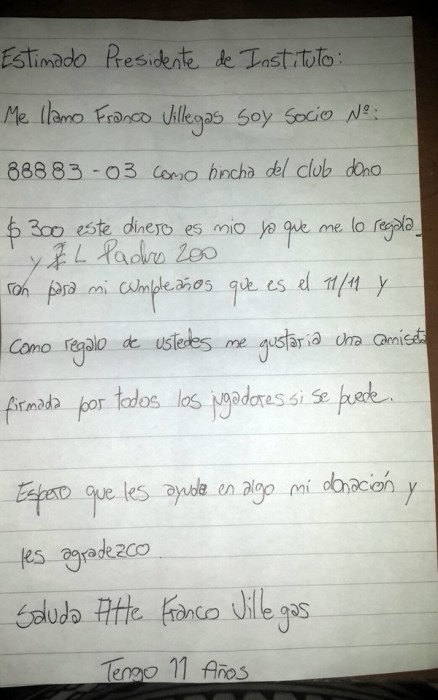 Estimado Presidente de Instituto:
Me llamo Franco Villegas soy socio Nº:
88883-03 como hincha del club dono
$ 300 este dinero es mio ya que me lo regala_
y EL Padre 200
ron para mi cumpleaños que es el 11/11 y
como regalo de ustedes me gustaria una camiseta
firmada por todos los jugadores si se puede.
Espero que les ayude en algo mi donación y
les agradezco.
Saluda Atte Franco Villegas
Tengo 11 Años